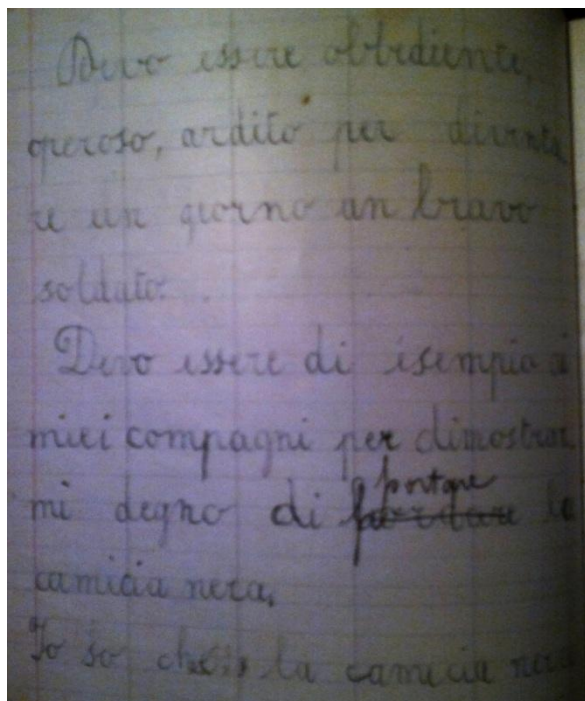 Devo essere obbediente,
operoso, ardito per diventa
re un giorno un bravo
soldato.
Devo essere di esempio ai
miei compagni per dimostrar
mi degno di portare la
camicia nera.
Io so che la camicia nera